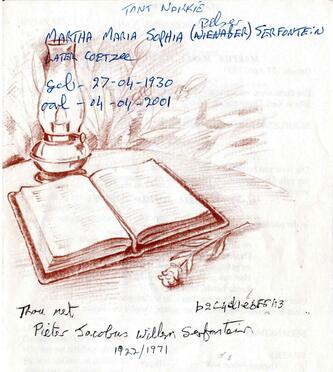 TANT NAKKIE
Belser
MARTHA MARIA SOPHIA (NIENABER) SERFONTEIN
LATER COETZEE
geb - 27-04-1930
oorl - 04-04-2001
Trou met
Pieter Jacobus Willem Serfontein
1922/1971